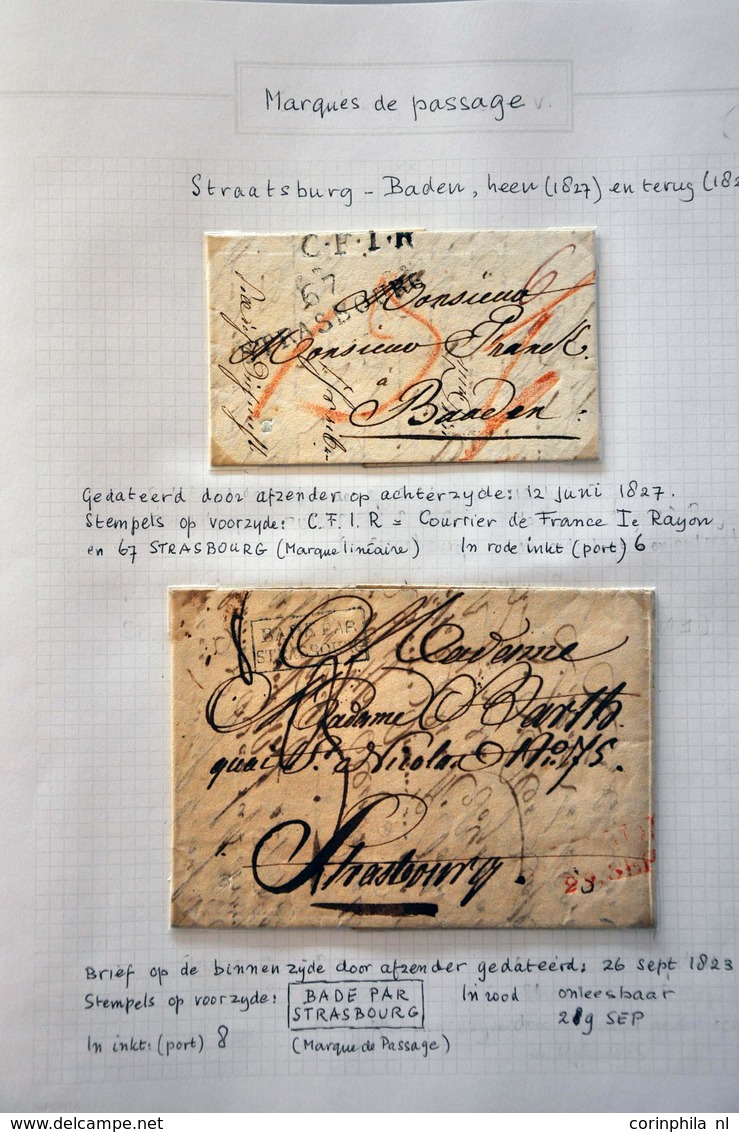 Marques de passage
Straatsburg - Baden, heen (1827) en terug (182
C·F·I·R
67
STRASBOURG
Monsieur
Monsieur Franck.
à
Baaden.
Gedateerd door afzender op achterzyde: 12 juni 1827.
Stempels op voorzyde: C.F.I.R = Courrier de France Ie Rayon,
en 67 STRASBOURG (Marque linéaire) In rode inkt (port) 6
BADE PAR
STRASBOURG
8
Madame
Madame Barth
quai St. Nicolas No. 75.
Strasbourg.
SEP
Brief op de binnenzyde door afzender gedateerd: 26 sept 1823
Stempels op voorzyde: BADE PAR STRASBOURG In rood onleesbaar
29 SEP
In inkt: (port) 8 (Marque de Passage)
corinphila nl